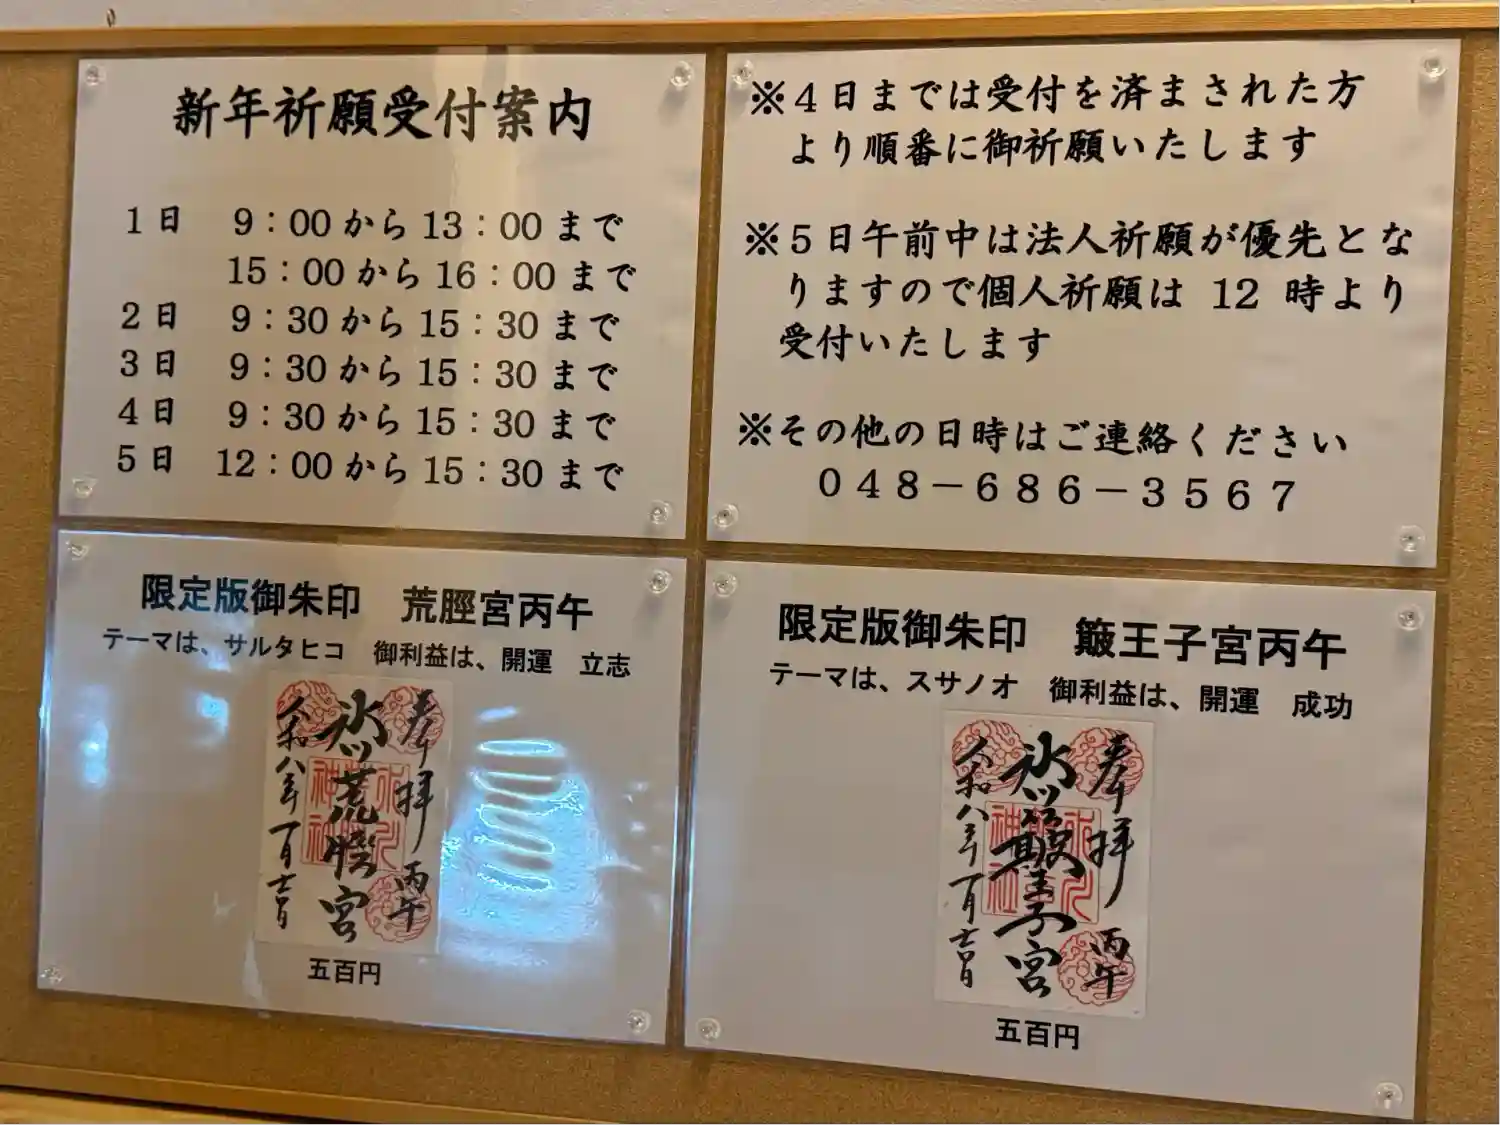 新年祈願受付案内
1日 9：00から13：00まで
15：00から16：00まで
2日 9：30から15：30まで
3日 9：30から15：30まで
4日 9：30から15：30まで
5日 12：00から15：30まで
※4日までは受付を済まされた方
より順番に御祈願いたします
※5日午前中は法人祈願が優先とな
りますので個人祈願は 12 時より
受付いたします
※その他の日時はご連絡ください
048－686－3567
限定版御朱印 荒脛宮丙午
テーマは、サルタヒコ 御利益は、開運 立志
奉拝 丙午
氷川荒脛宮
令和八年一月
五百円
限定版御朱印 簸王子宮丙午
テーマは、スサノオ 御利益は、開運 成功
奉拝 丙午
氷川簸王子宮
令和八年一月
五百円